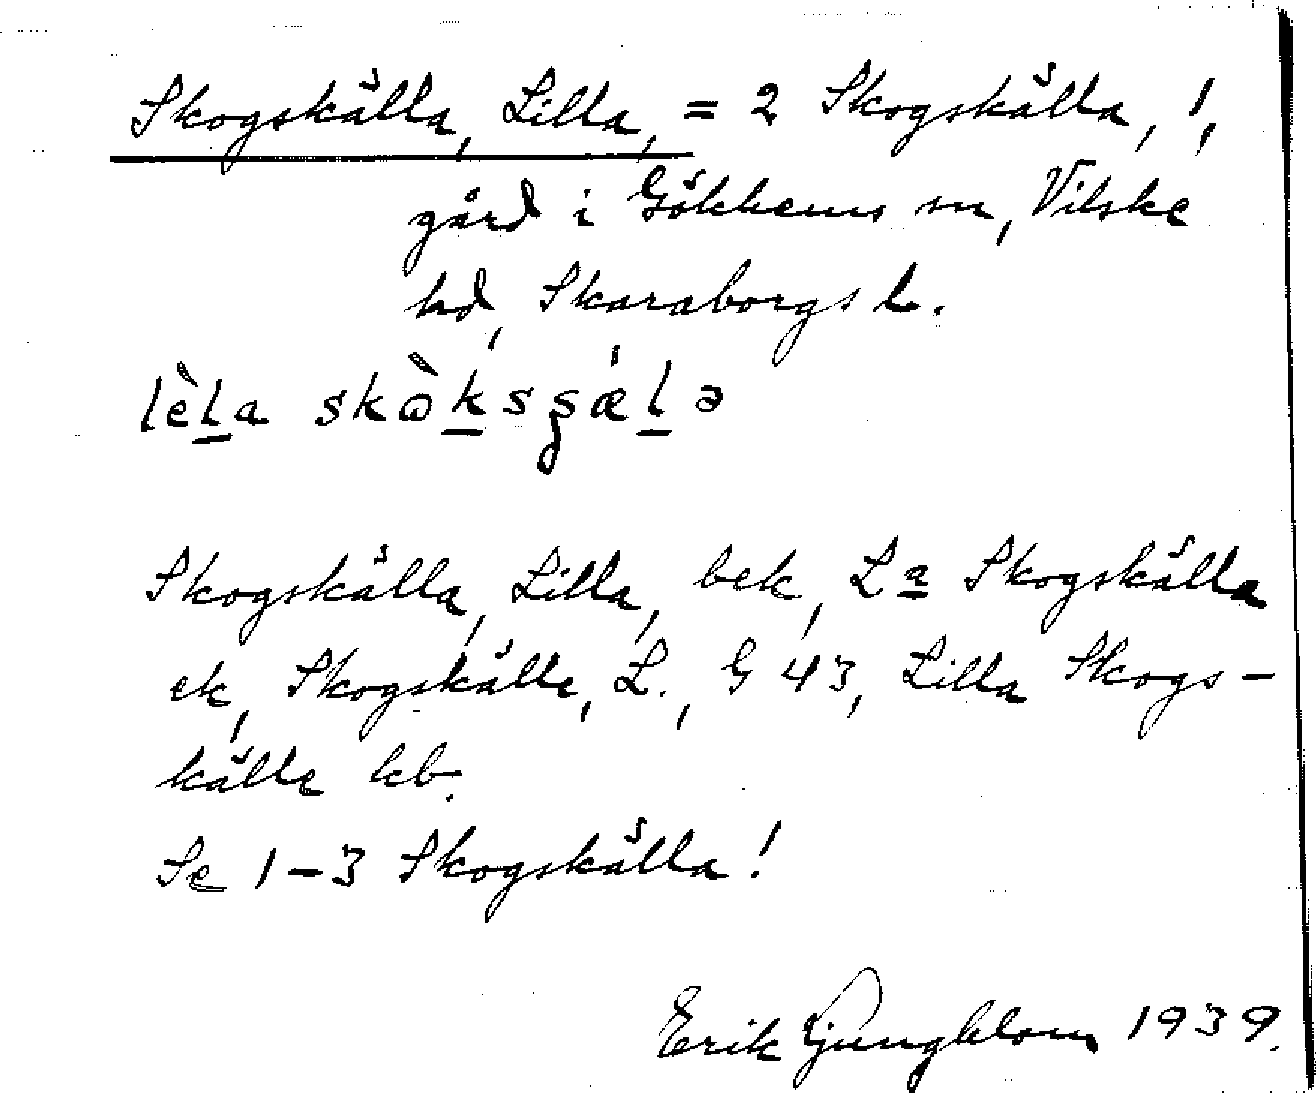 Skogskälla, Lilla, = 2 Skogskälla, !,
gård i Gökhems sn, Vilske
hd, Skaraborgs l.
lèla skòksʂǽlə
Skogskälla, Lilla, bek, La Skogskälla
ek, Skogskälla, L., G 43, Lilla Skogs-
källa kb.
Se 1–3 Skogskälla!
Erik Ljungblom 1939.